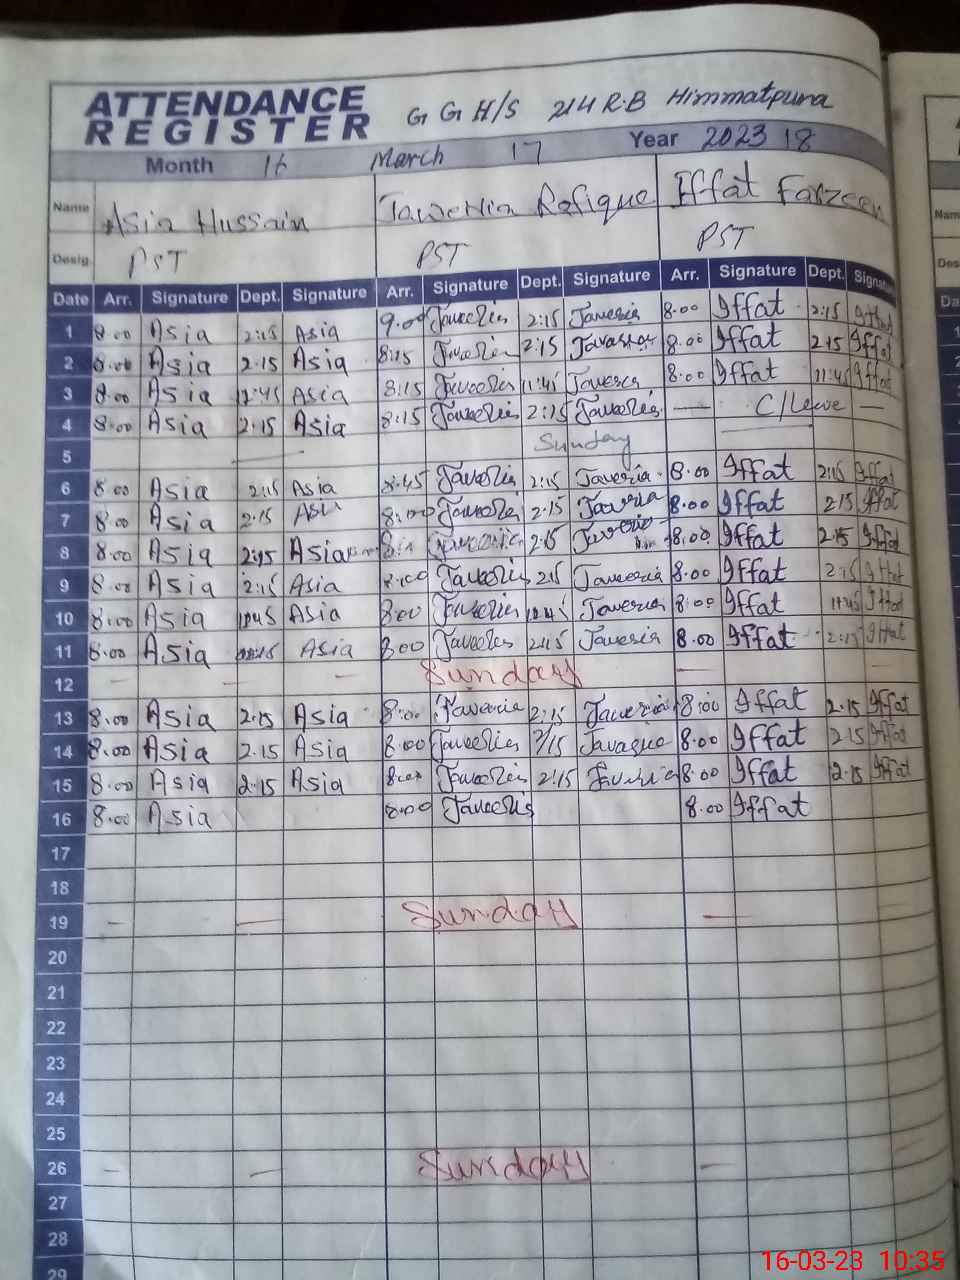 ATTENDANCE REGISTER G G H/S 214 R.B Himmatpura
Month 16 March 17 Year 2023 18
Name Asia Hussain Rafique Iffat Farzeen
Desig. PST PST PST
Date Arr. Signature Dept. Signature Arr. Signature Dept. Signature Arr. Signature Dept. Signature
1 8.00 Asia 2:15 Asia 9.00 2:15 Javeria 8.00 Iffat 2:15 Iffat
2 8.00 Asia 2.15 Asia 8:15 2:15 8.00 Iffat 2.15 Iffat
3 8.00 Asia Asia 8:15 11:45 8:00 Iffat 11:45 Iffat
4 8:00 Asia 2.15 Asia 8:15 2:15 — C/Leave —
5 Sunday
6 8.00 Asia 2:15 Asia 8:45 2:15 Javeria 8.00 Iffat 2:15 Iffat
7 8.00 Asia 2.15 Asia 8:00 2.15 8.00 Iffat 2.15 Iffat
8 8.00 Asia 2:15 Asia 2:15 8.00 Iffat 2.15 Iffat
9 8.00 Asia 2:15 Asia 8:00 Javeria 8.00 Iffat 2:15 Iffat
10 8.00 Asia Asia 8:00 8:00 Iffat 11:45 Iffat
11 8.00 Asia Asia 800 2:15 Javeria 8.00 Iffat 2:15 Iffat
12 Sunday
13 8.00 Asia 2.15 Asia 8:00 2:15 8:00 Iffat 2.15 Iffat
14 8.00 Asia 2.15 Asia 8:00 8.00 Iffat 2.15 Iffat
15 8.00 Asia 2.15 Asia 8:00 2:15 8.00 Iffat 2.15 Iffat
16 8.00 Asia 8:00 8.00 Iffat
17
18
19 Sunday
20
21
22
23
24
25
26 Sunday
27
28
29
16-03-23 10:35